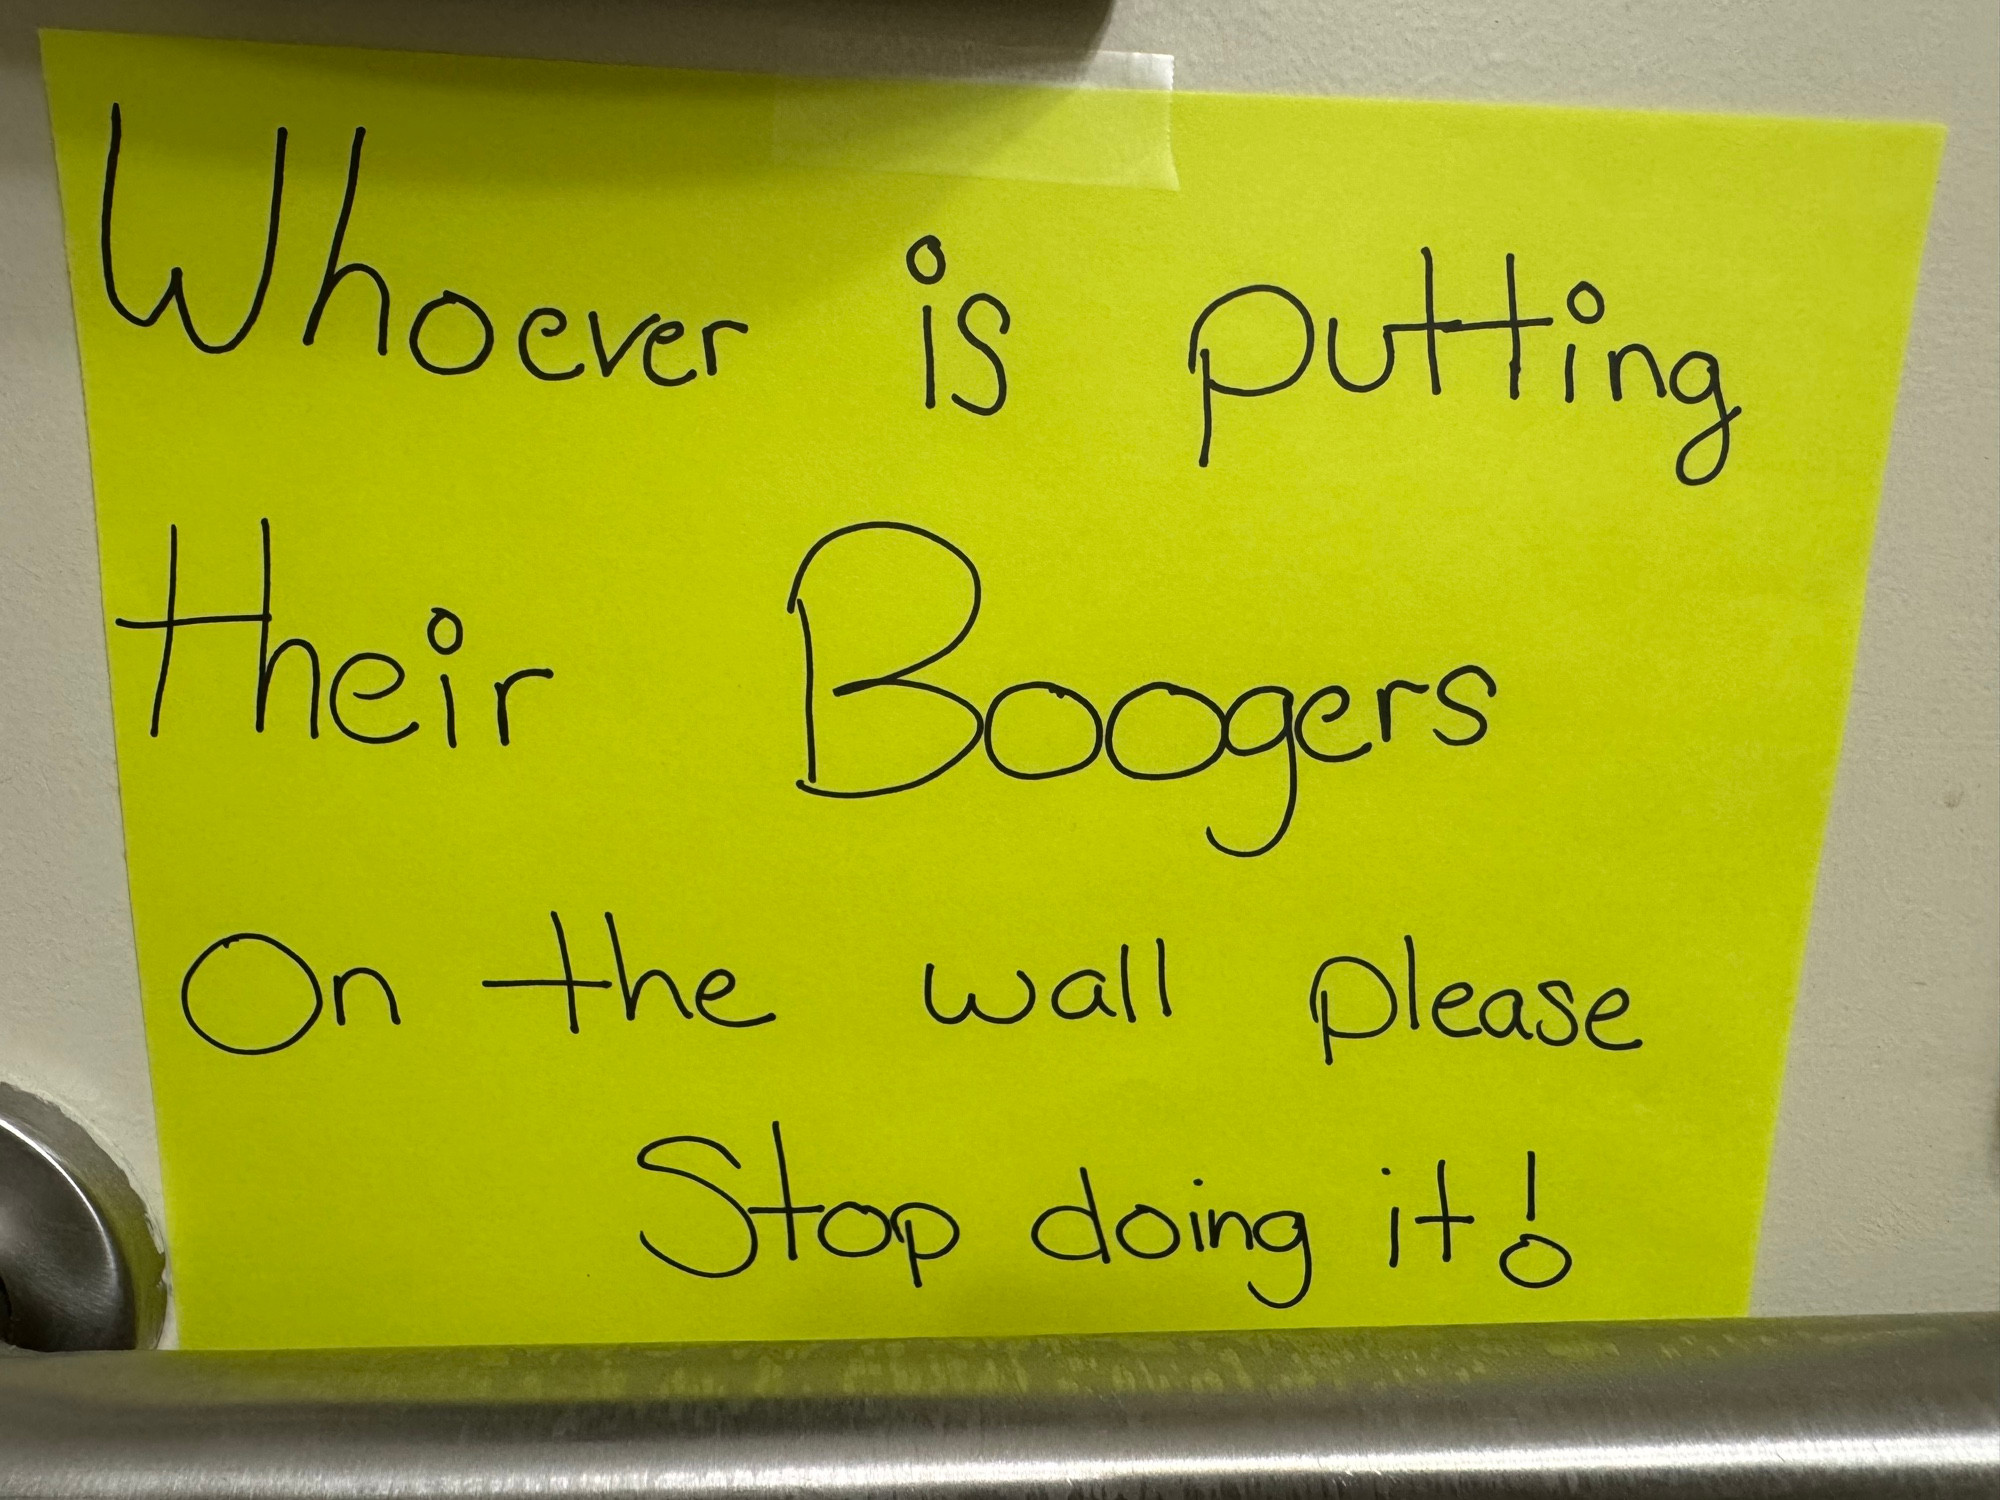 Whoever is putting
their Boogers
On the wall please
Stop doing it!